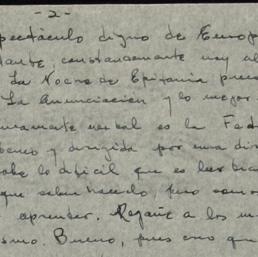 -2-
spectáculo digno de Europ
tante, constantemente muy al
La Noche de Epifanía pues
La Anunciación y lo mejor
mamente verbal es la Fed
y dirigida por una di
sabe lo difícil que es leer bi
que saber hacerlo, pero como
aprender. Regañé a los m
ismo. Bueno, pues creo que